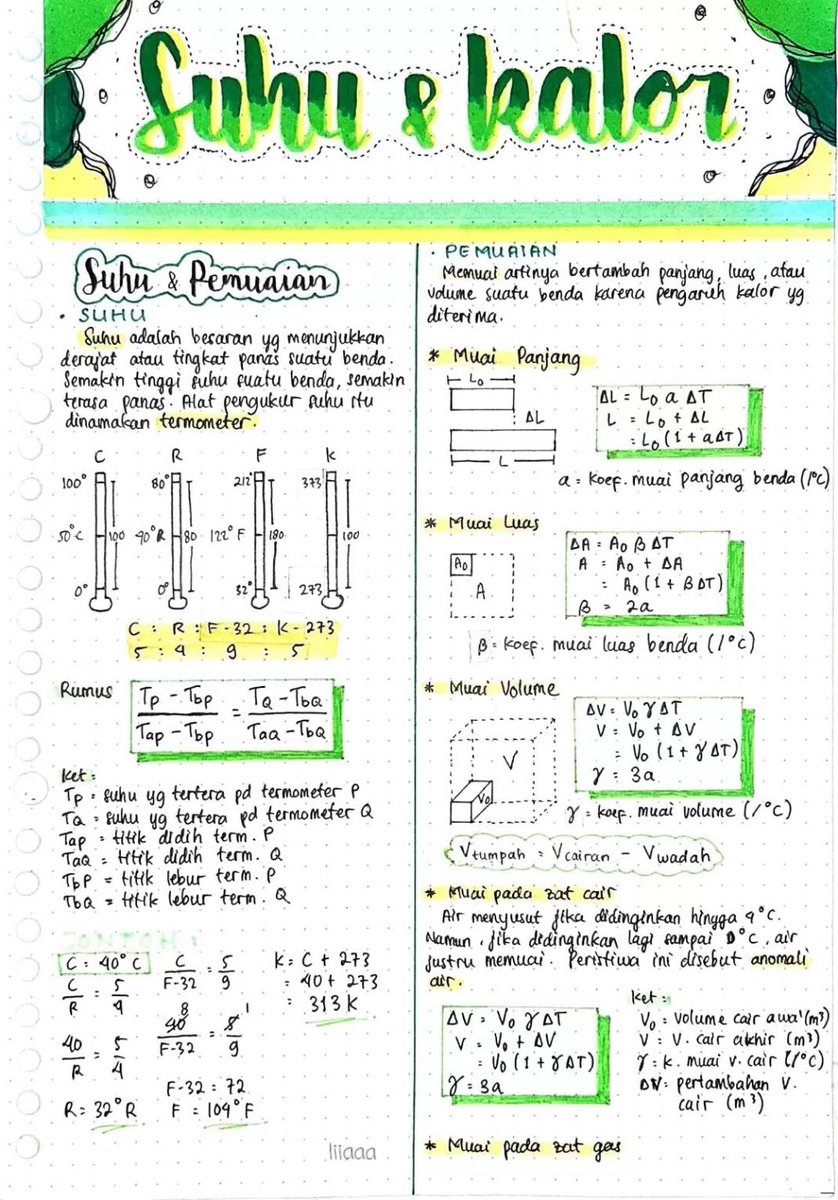 Suhu & kalor
Suhu & Pemuaian
• SUHU
Suhu adalah besaran yg menunjukkan
derajat atau tingkat panas suatu benda.
Semakin tinggi suhu suatu benda, semakin
terasa panas. Alat pengukur suhu itu
dinamakan termometer.
C R F K
100° 80° 212° 373
50°C 100 40°R 80 122°F 180 100
0° 0° 32° 273
C : R : F-32 : K-273
5 : 4 : 9 : 5
Rumus
Tp - Tbp / Tap - Tbp = TQ - TbQ / TaQ - TbQ
Ket :
Tp = suhu yg tertera pd termometer P
TQ = suhu yg tertera pd termometer Q
Tap = titik didih term. P
TaQ = titik didih term. Q
TbP = titik lebur term. P
TbQ = titik lebur term. Q
C = 40°C
C/R = 5/4
40/R = 5/4
R = 32°R
C/F-32 = 5/9
8 1
40/F-32 = 5/9
F-32 = 72
F = 104°F
K = C + 273
= 40 + 273
= 313 K
liiaaa
• PEMUAIAN
Memuai artinya bertambah panjang, luas, atau
volume suatu benda karena pengaruh kalor yg
diterima.
* Muai Panjang
L₀
ΔL
L
ΔL = L₀ a ΔT
L = L₀ + ΔL
= L₀ (1 + aΔT)
a = koef. muai panjang benda (/°C)
* Muai Luas
A₀
A
ΔA = A₀ β ΔT
A = A₀ + ΔA
= A₀ (1 + βΔT)
β = 2a
β = koef. muai luas benda (/°C)
* Muai Volume
V
V₀
ΔV = V₀ γ ΔT
V = V₀ + ΔV
= V₀ (1 + γ ΔT)
γ = 3a
γ = koef. muai volume (/°C)
Vtumpah = Vcairan - Vwadah
* Muai pada zat cair
Air menyusut jika didinginkan hingga 4°C.
Namun, jika didinginkan lagi sampai 0°C, air
justru memuai. Peristiwa ini disebut anomali
air.
ΔV = V₀ γ ΔT
V = V₀ + ΔV
= V₀ (1 + γ ΔT)
γ = 3a
Ket :
V₀ = volume cair awal (m³)
V = V. cair akhir (m³)
γ = k. muai v. cair (/°C)
ΔV = pertambahan V.
cair (m³)
* Muai pada zat gas